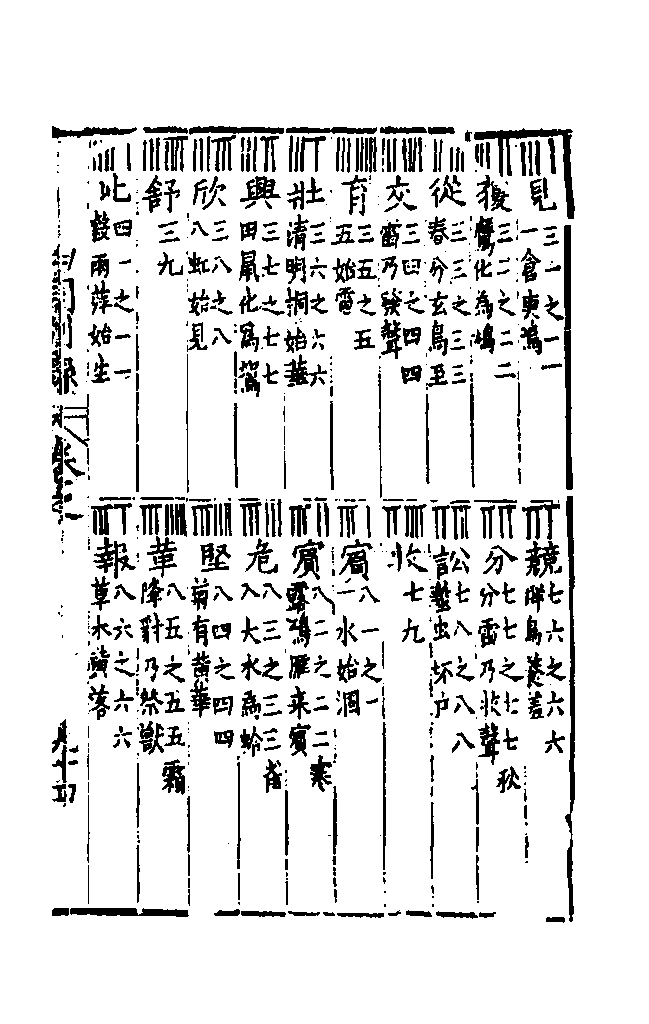 見三一之一一倉庚鳴
獲三二之二二鷹化為鳩
從三三之三三春分玄鳥至
交三四之四四雷乃發聲
育三五之五五始電
壯三六之六六清明桐始華
興三七之七七田鼠化為鴽
欣三八之八八虹始見
舒三九
比四一之一一穀雨萍始生
競七六之六六群鳥養羞
分七七之七七秋分雷乃收聲
訟七八之八八蟄虫坏戶
收七九
八一之一一水始涸
賓八二之二二寒露鴻雁來賓
危八三之三三雀入大水為蛤
堅八四之四四菊有黃華
革八五之五五霜降豺乃祭獸
報八六之六六草木黃落
卷二